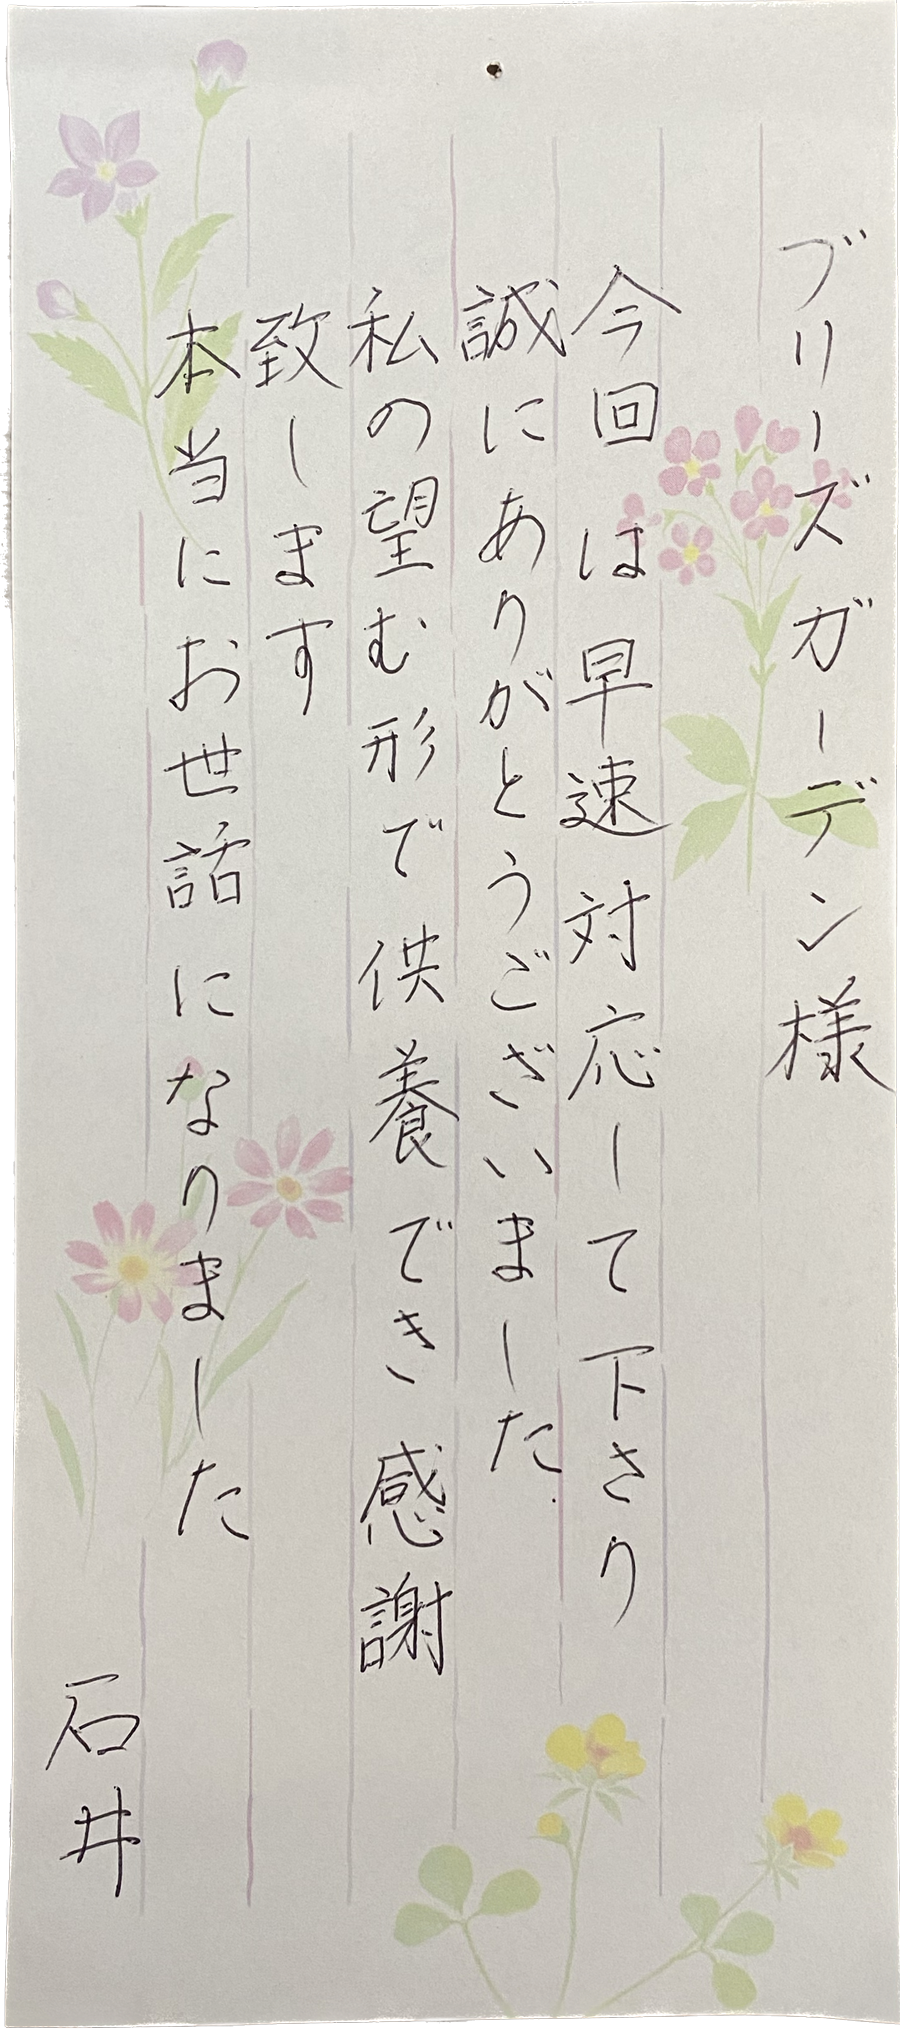 ブリーズガーデン様
今回は早速対応して下さり
誠にありがとうございました.
私の望む形で供養でき感謝
致します
本当にお世話になりました
石井